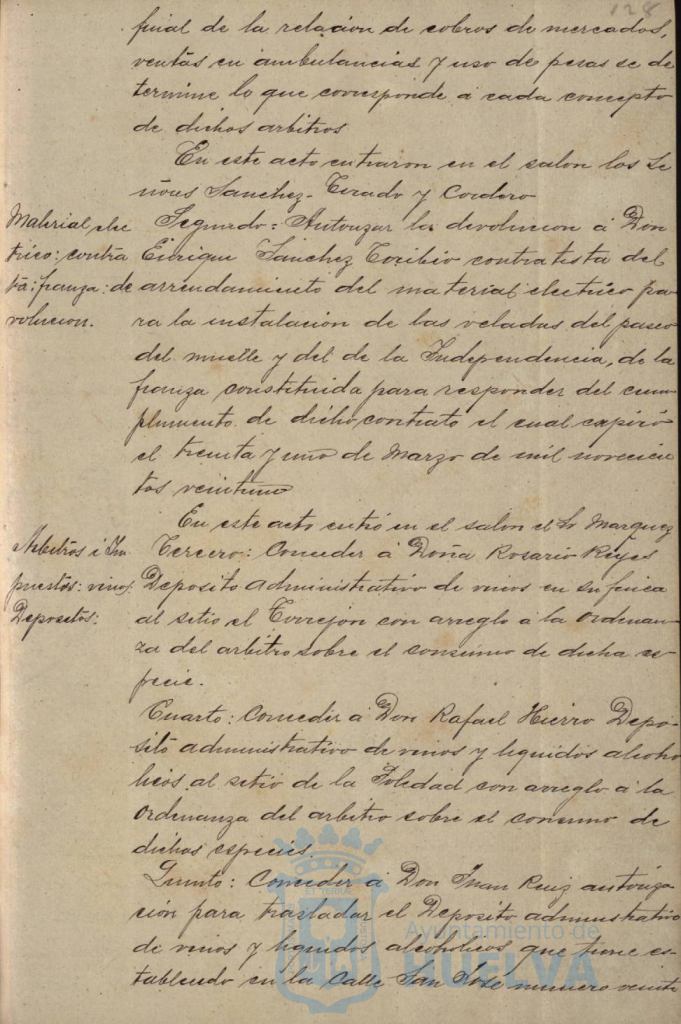 128
final de la relacion de cobros de mercados,
ventas en ambulancias y uso de pesas se de
termine lo que corresponde á cada concepto
de dichos arbitros
En este acto entraron en el salon los Se
ñores Sanchez-Tirado y Cordero
Material elec
trico: contra
ta: fianza: de
volucion.
Segundo: Autorizar la devolucion á Don
Enrique Sanchez Toribio contratista del
arrendamiento del material electrico pa
ra la instalacion de las veladas del paseo
del muelle y del de la Independencia, de la
fianza constituida para responder del cum
plimiento de dicho contrato el cual expiró
el treinta y uno de Marzo de mil novecien
tos veintiuno
En este acto entró en el salon el Sr Marquez
Arbitrios i Im
puestos: vinos
Depositos:
Tercero: Conceder á Doña Rosario Reyes
Deposito administrativo de vinos en su finca
al sitio el Torrejon con arreglo á la Ordenan
za del arbitro sobre el consumo de dicha es
pecie.
Cuarto: Conceder á Don Rafael Hierro Depo
sito administrativo de vinos y liquidos alcoho
licos al sitio de la Soledad con arreglo á la
Ordenanza del arbitro sobre el consumo de
dichas especies
Quinto: Conceder á Don Juan Ruiz autoriza
cion para trasladar el Deposito administrativo
de vinos y liquidos alcoholicos que tiene es-
tablecido en la Calle San José numero veinte
Ayuntamiento de
HUELVA